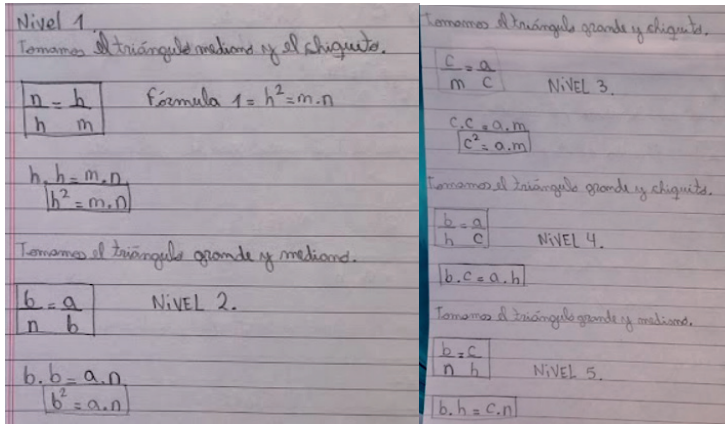 Nivel 1
Tomamos el triángulo mediano y el chiquito.
n = h
h m
fórmula 1 = h² = m.n
h.h = m.n
h² = m.n
Tomamos el triángulo grande y mediano.
b = a
n b
NiVEL 2.
b.b = a.n
b² = a.n
Tomamos el triángulo grande y chiquito.
c = a
m c
NiVEL 3.
c.c = a.m
c² = a.m
Tomamos el triángulo grande y chiquito.
b = a
h c
NiVEL 4.
b.c = a.h
Tomamos el triángulo grande y mediano.
b = c
n h
NiVEL 5.
b.h = c.n